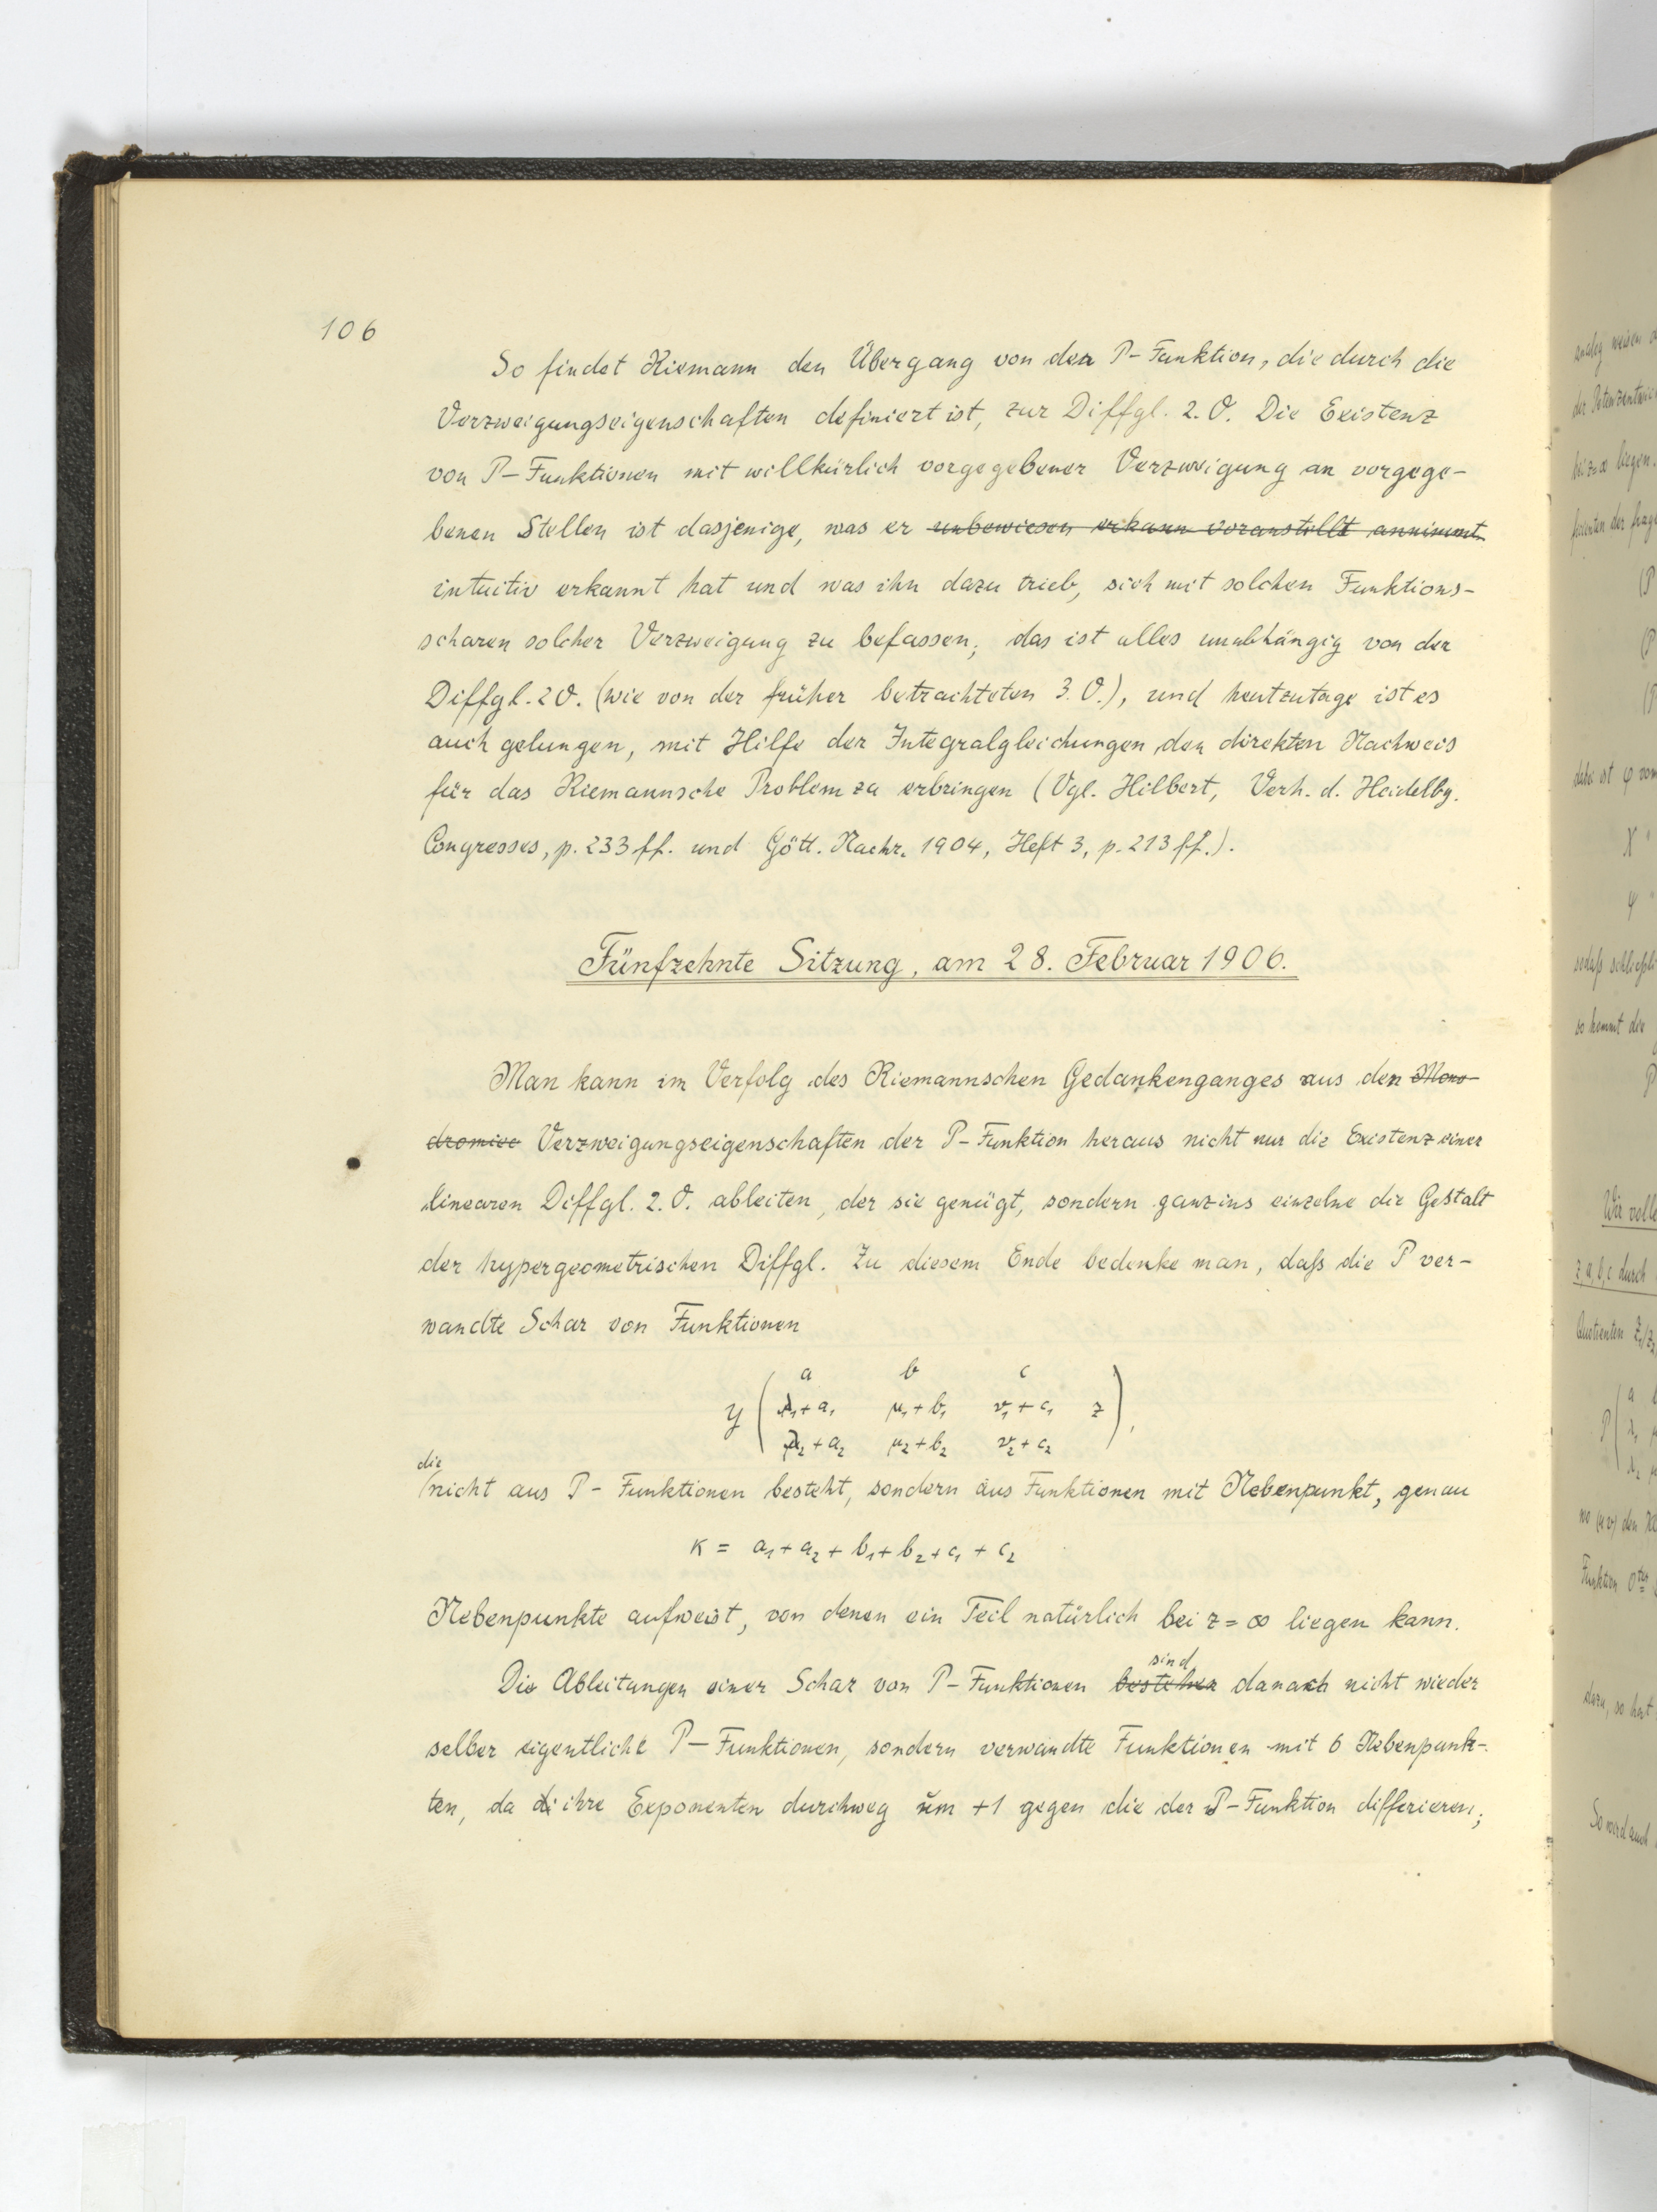 106
So findet Riemann den Übergang von den P-Funktion, die durch die
Verzweigungseigenschaften definiert ist, zur Diffgl. 2. O. Die Existenz
von P-Funktionen mit willkürlich vorgegebener Verzweigung an vorgege-
benen Stellen ist dasjenige, was er unbewiesen voranstellt annimmt
intuitiv erkannt hat und was ihn dazu trieb, sich mit solchen Funktions-
scharen solcher Verzweigung zu befassen; das ist alles unabhängig von der
Diffgl. 2 O. (wie von der früher betrachteten 3. O.), und heutzutage ist es
auch gelungen, mit Hilfe der Integralgleichungen den direkten Nachweis
für das Riemannsche Problem zu erbringen (Vgl. Hilbert, Verh. d. Heidelbg.
Congresses, p. 233 ff. und Gött. Nachr. 1904, Heft 3, p. 213 ff.).
Fünfzehnte Sitzung, am 28. Februar 1906.
Man kann im Verfolg des Riemannschen Gedankenganges aus den Mono-
dromiee Verzweigungseigenschaften der P-Funktion heraus nicht nur die Existenz einer
linearen Diffgl. 2. O. ableiten, der sie genügt, sondern ganz ins einzelne die Gestalt
der hypergeometrischen Diffgl. Zu diesem Ende bedenke man, daß die P ver-
wandte Schar von Funktionen
a b c
y ( λ₁+a₁ μ₁+b₁ ν₁+c₁ z ),
λ₂+a₂ μ₂+b₂ ν₂+c₂
die
(nicht aus P-Funktionen besteht, sondern aus Funktionen mit Nebenpunkt, genau
κ = a₁+a₂+b₁+b₂+c₁+c₂
Nebenpunkte aufweist, von denen ein Teil natürlich bei z=∞ liegen kann.
sind
Die Ableitungen einer Schar von P-Funktionen bestehen danach nicht wieder
selber eigentliche P-Funktionen, sondern verwandte Funktionen mit 6 Nebenpunk-
ten, da di ihre Exponenten durchweg um +1 gegen die der P-Funktion differieren;